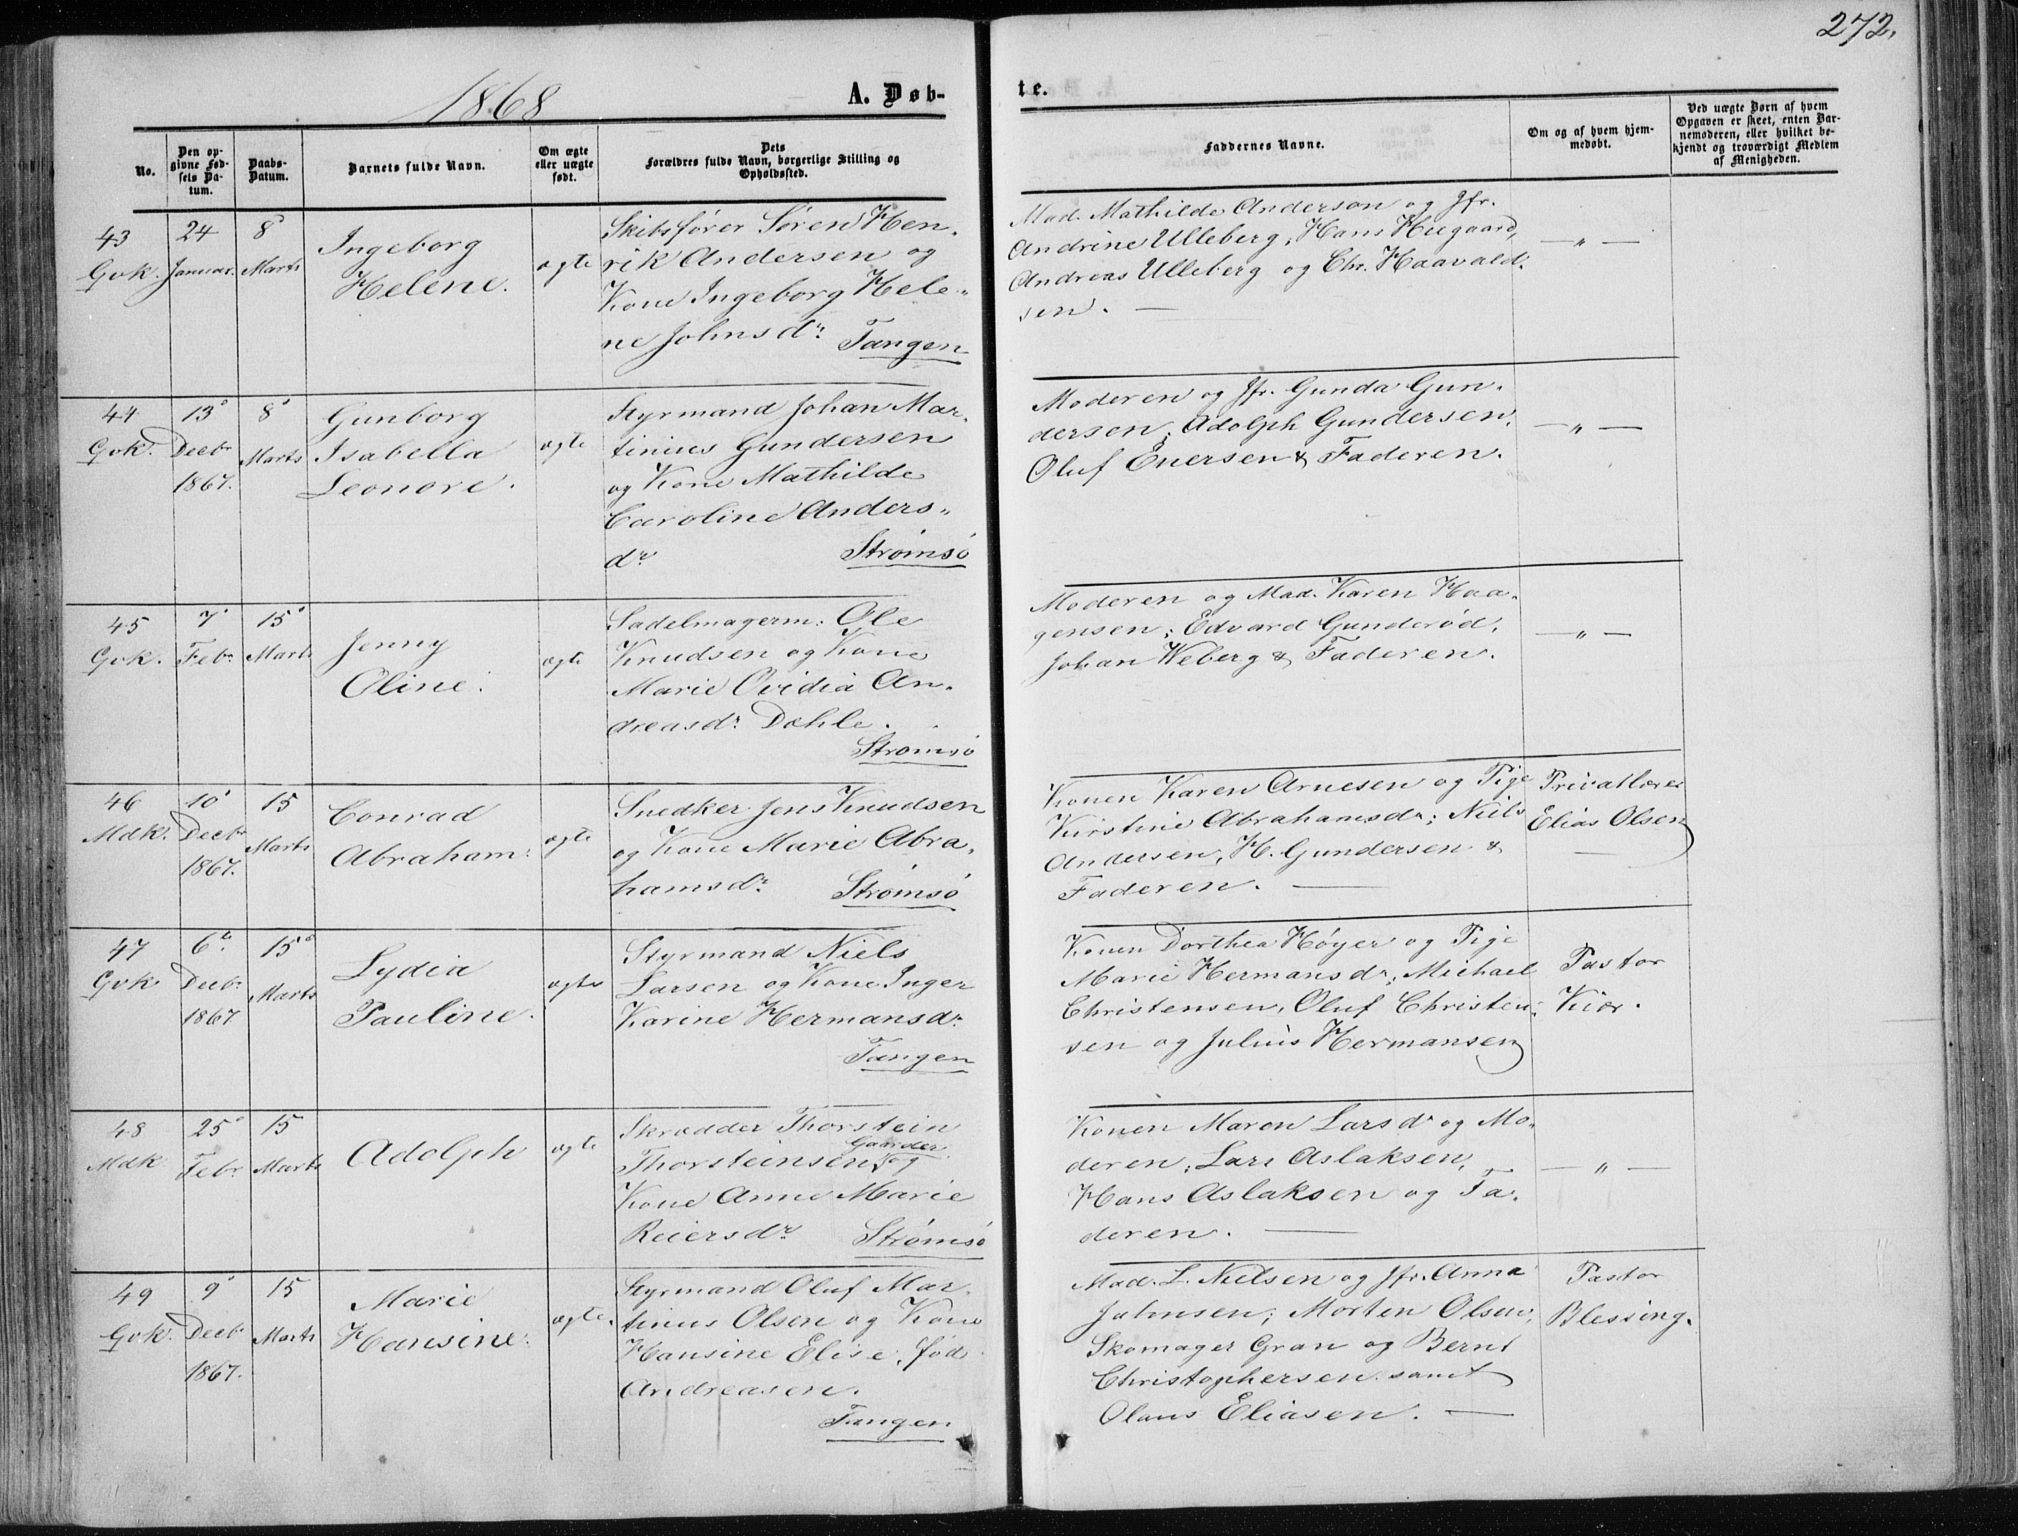 272.
1868
A. Døb-
te.
No.
Den op-
givne Fød-
sels Da-
tum.
Daabs-
Datum.
Barnets fulde Navn.
Om ægte
eller uægte
født.
Dets
Forældres fulde Navn, borgerlige Stilling og
Opholdssted.
Faddernes Navne.
Om og af hvem hjem-
medøbt.
Ved uægte Børn af hvem
Opgaven er skeet, enten Bar-
nemoderen, eller hvilket be-
kjendt og troværdigt Medlem
af Menigheden.
43
Gvk.
24
Januar.
8
Marts
Ingeborg
Helene.
ægte
Skibsfører Søren Hen-
rik Andersen og
Kone Ingeborg Hele-
ne Johnsdr. Tangen
Mad. Mathilde Anderson og Jfr.
Andrine Ulleberg, Hans Hugaard,
Andreas Ulleberg og Chr. Haavald-
sen. —
— " —
44
Gvk.
13
Decbr
1867.
8
Marts
Gunborg
Isabella
Leonore.
ægte
Styrmand Johan Mar-
tinius Gundersen
og Kone Mathilde
Caroline Anders-
dr. Strømsø
Moderen og Jfr. Gunda Gun-
dersen, Adolph Gundersen,
Oluf Eversen & Faderen.
— " —
45
Gvk.
7
Febr.
15
Marts
Jenny
Oline.
ægte
Sadelmagerm: Ole
Knudsen og Kone
Marie Ovidia An-
dreasdr. Dahle.
Strømsø
Moderen og Mad. Karen Haa-
gensen; Edvard Gunderød,
Johan Weberg & Faderen.
— " —
46
Mdk.
10
Decbr
1867.
15
Marts
Conrad
Abraham.
ægte
Snedker Jens Knudsen
og Kone Marie Abra-
hamsdr. Strømsø
Konen Karen Arnesen og Pige
Kirstine Abrahamsdr.; Niels
Andersen, H. Gundersen &
Faderen. —
Privatlærer
Elias Olsen
—
47
Gvk.
6
Decbr.
1867
15
Marts
Lydia
Pauline.
ægte
Styrmand Niels
Larsen og Kone Inger
Karine Hermansdr.
Tangen
Konen Dorthea Høyer og Pige
Marie Hermansdr.; Michael
Christensen, Oluf Christen-
sen og Julius Hermansen
Pastor
Kiær.
48
Mdk
25
Febr
15
Marts
Adolph
ægte
Skrædder Thorstein
Gaarder
Thorsteinsen og
Kone Anne Marie
Reiersdr. Strømsø
Konen Maren Larsdr og Mo-
deren; Lars Aslaksen,
Hans Aslaksen og Fa-
deren. —
— " —
49
Gvk.
9
Decbr
1867.
15
Marts
Marie
Hansine.
ægte.
Styrmand Oluf Mar-
tinius Olsen og Kone
Hansine Elise, fød
Andreasen.
Tangen
Mad. L. Nielsen og Jfr. Anna
Jahnsen; Morten Olsen,
Skomager Gran og Bernt
Christophersen samt
Olaus Eliasen. —
Pastor
Blessing.